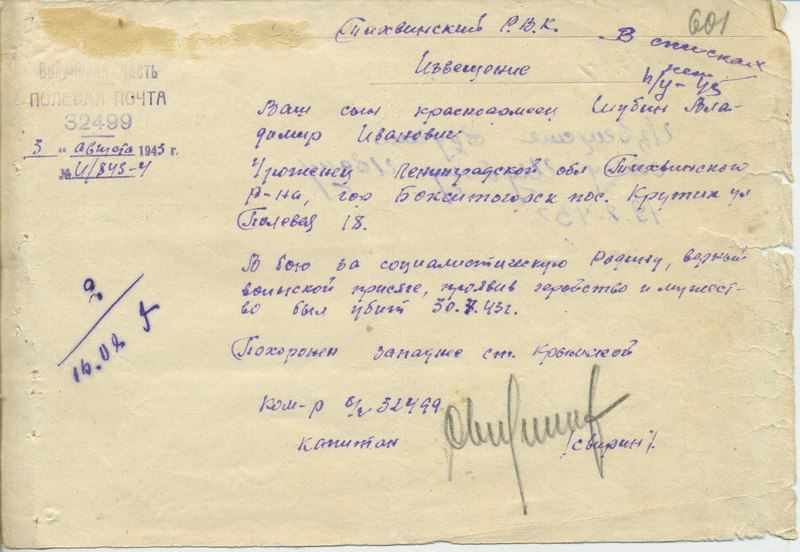 601
Тихвинский Р.В.К.
В списках
нет
Извещение
Войсковая часть
ПОЛЕВАЯ ПОЧТА
32499
3 " августа 1943 г.
№ И/845-4
Ваш сын красноармеец Шубин Вла-
димир Иванович
Уроженец Ленинградской обл Тихвинского
р-на, гор Бокситогорск пос. Крутик ул
Полевая 18.
В бою за социалистическую Родину, верный
воинской присяге, проявив геройство и мужест-
во был убит 30.7.43г.
Похоронен западнее ст. Крымской
16.08
Ком-р в/ч 32499
Капитан /Свирин/.